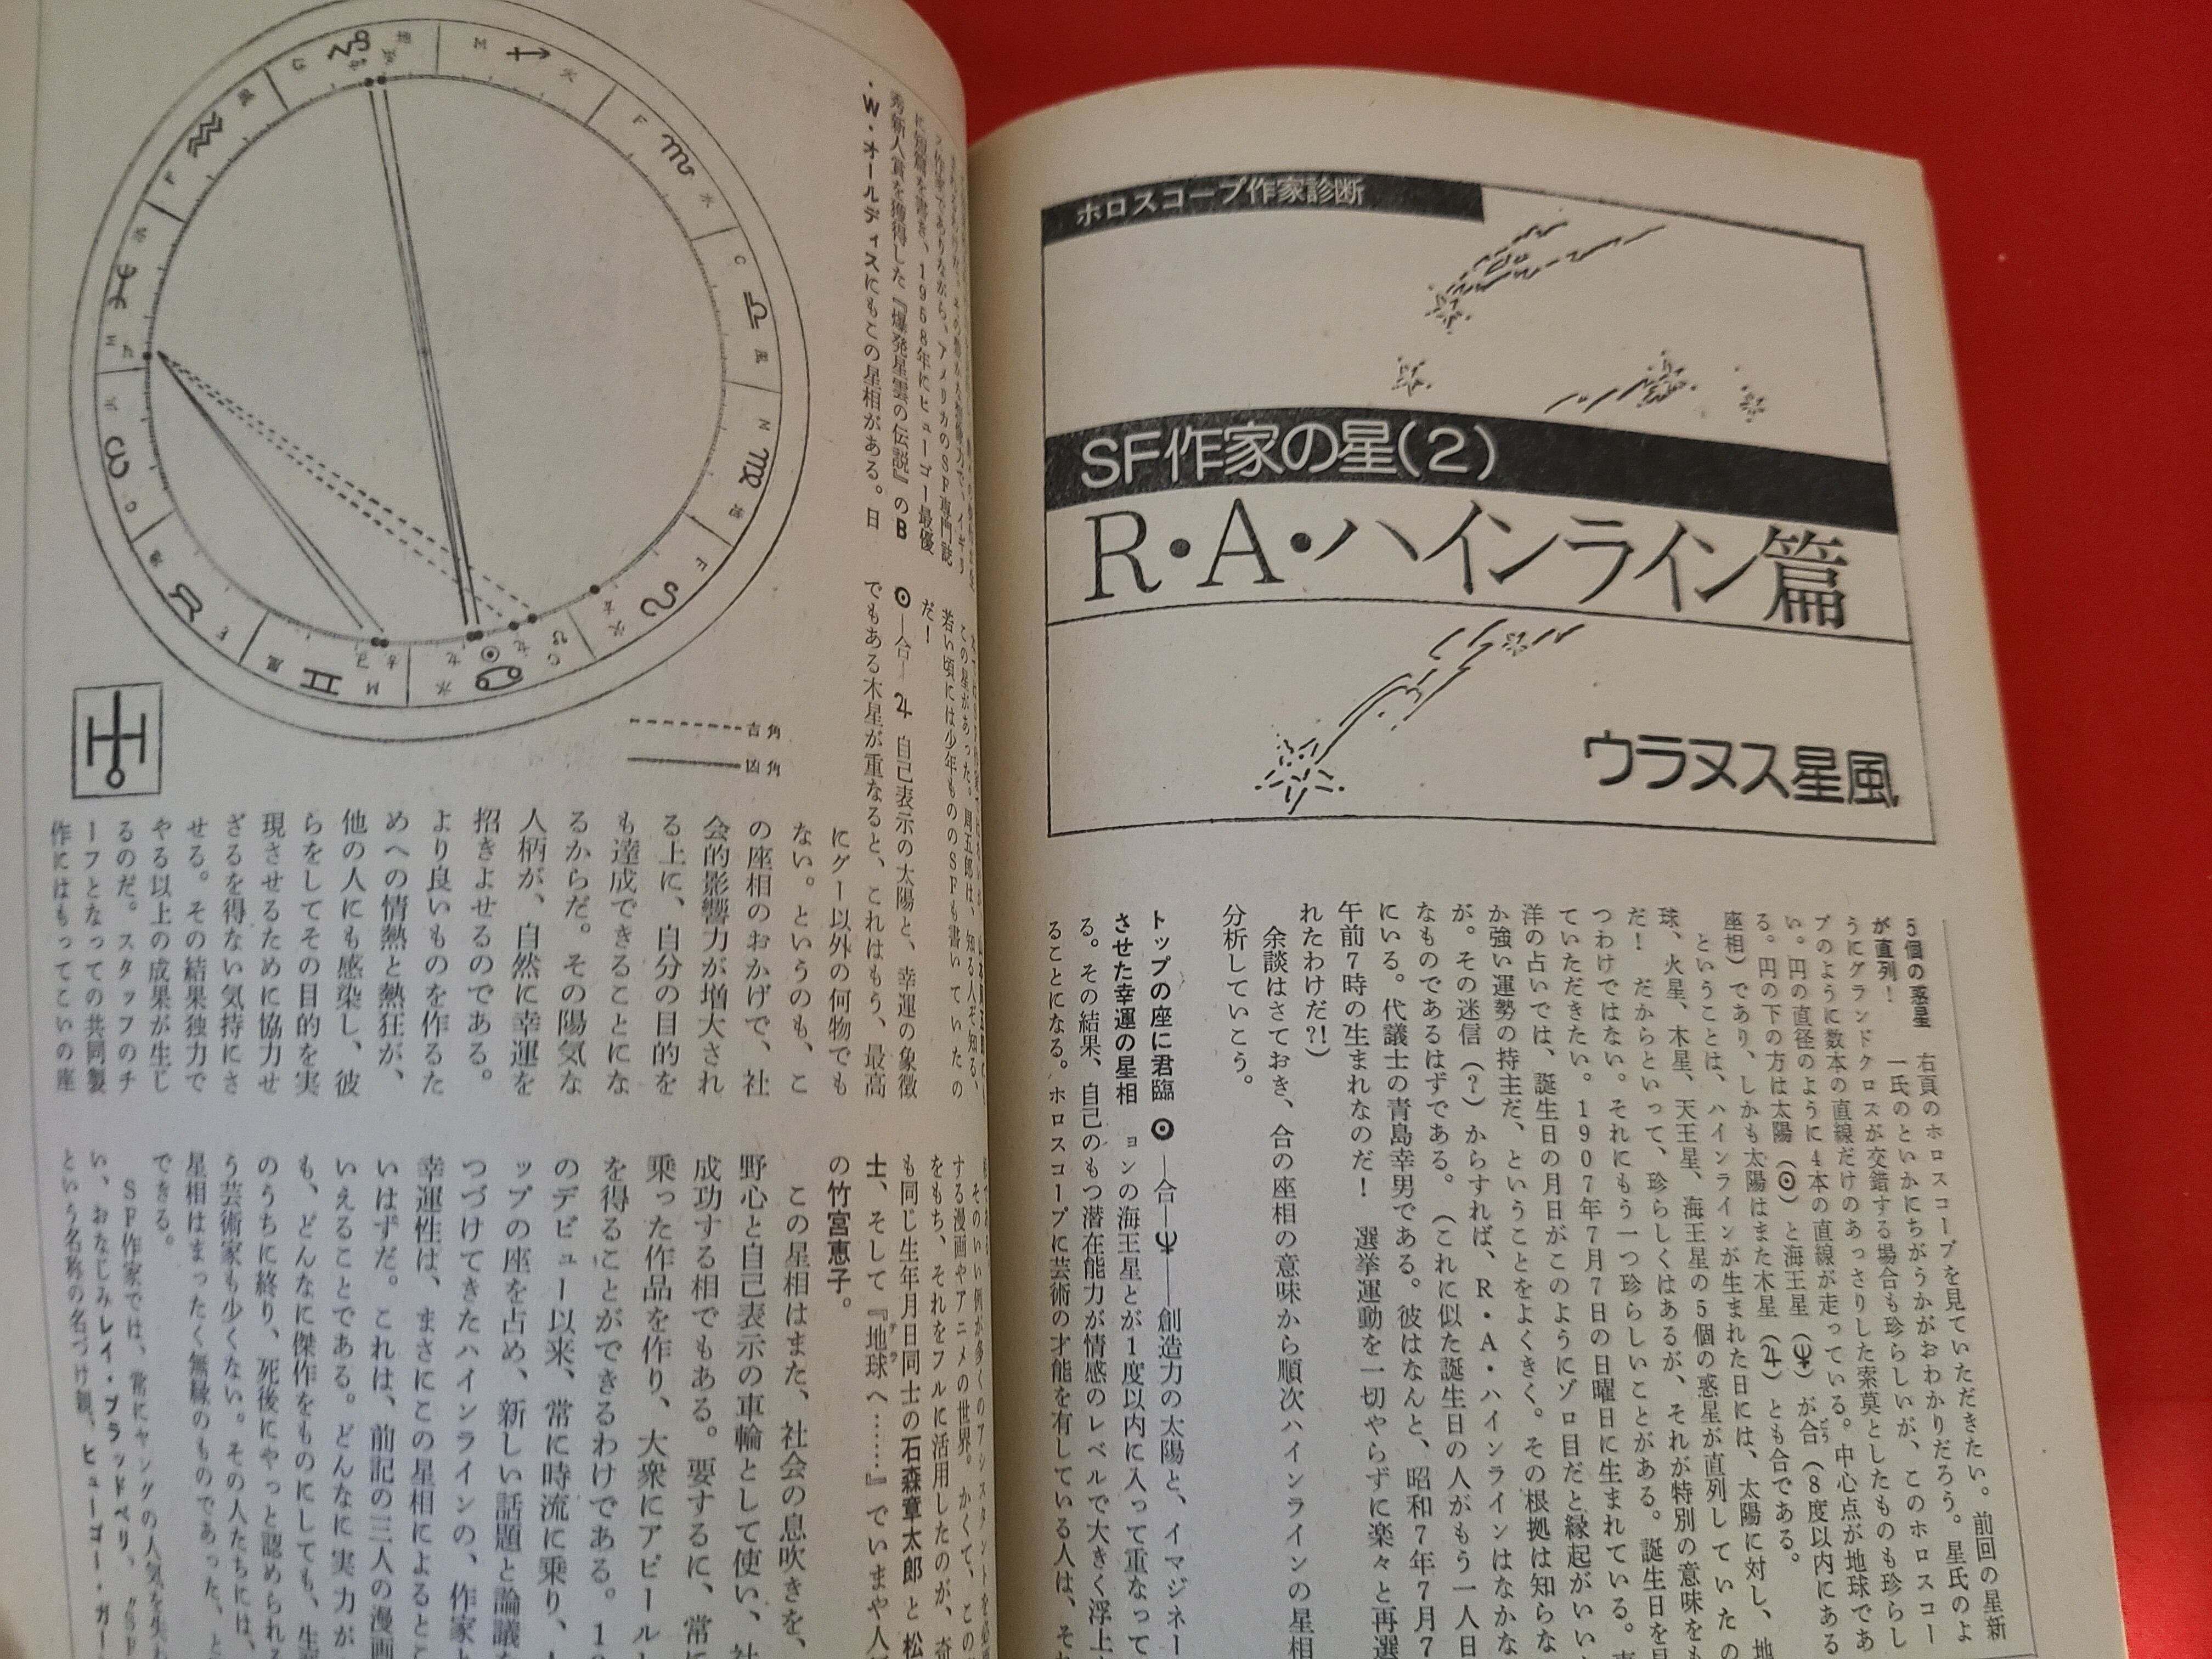 ホロスコープ作家診断
SF作家の星(2)
R・A・ハインライン篇
ウラヌス星風
5個の惑星
が直列!
右頁のホロスコープを見ていただきたい。前回の星新
一氏のといかにちがうかがおわかりだろう。星氏のよ
うにグランドクロスが交錯する場合も珍らしいが、このホロスコー
プのように数本の直線だけのあっさりした索莫としたものも珍らし
い。円の直径のように4本の直線が走っている。中心点が地球であ
る。円の下の方は太陽(☉)と海王星(♆)が合(8度以内にある
座相)であり、しかも太陽はまた木星(♃)とも合である。
ということは、ハインラインが生まれた日には、太陽に対し、地
球、火星、木星、天王星、海王星の5個の惑星が直列していたの
だ! だからといって、珍らしくはあるが、それが特別の意味をも
つわけではない。それにもう一つ珍らしいことがある。誕生日を見
ていただきたい。1907年7月7日の日曜日に生まれている。
洋の占いでは、誕生日の月日がこのようにゾロ目だと縁起がいい
か強い運勢の持主だ、ということをよくきく。その根拠は知らな
が。その迷信(?)からすれば、R・A・ハインラインはなかな
なものであるはずである。(これに似た誕生日の人がもう一人日
にいる。代議士の青島幸男である。彼はなんと、昭和7年7月7
午前7時の生まれなのだ! 選挙運動を一切やらずに楽々と再選
れたわけだ?!)
余談はさておき、合の座相の意味から順次ハインラインの星相
分析していこう。
トップの座に君臨
させた幸運の星相
☉―合―♆――創造力の太陽と、イマジネー
ョンの海王星とが1度以内に入って重なって
る。その結果、自己のもつ潜在能力が情感のレベルで大きく浮上
ることになる。ホロスコープに芸術の才能を有している人は、
に短篇を書き、1958年にヒューゴー最優
秀新人賞を獲得した『爆発星雲の伝説』のB
・W・オールディスにもこの星相がある。日
若い頃には少年もののSFも書いていたの
だ!
☉―合―♃ 自己表示の太陽と、幸運の象徴
でもある木星が重なると、これはもう、最高
にグー以外の何物でも
ない。というのも、こ
の座相のおかげで、社
会的影響力が増大され
る上に、自分の目的を
も達成できることにな
るからだ。その陽気な
人柄が、自然に幸運を
招きよせるのである。
より良いものを作るた
めへの情熱と熱狂が、
他の人にも感染し、彼
らをしてその目的を実
現させるために協力せ
ざるを得ない気持にさ
せる。その結果独力で
やる以上の成果が生じ
るのだ。スタッフのチ
ーフとなっての共同製
作にはもってこいの座
そのいい例が多くのアシスタントを必要
する漫画やアニメの世界。かくて、この
をもち、それをフルに活用したのが、奇
も同じ生年月日同士の石森章太郎と松
士、そして『地球へ……』でいまや人
テラ
の竹宮恵子。
この星相はまた、社会の息吹きを、
野心と自己表示の車輪として使い、社
成功する相でもある。要するに、常に
乗った作品を作り、大衆にアピール
を得ることができるわけである。1
のデビュー以来、常に時流に乗り、
ップの座を占め、新しい話題と論議
つづけてきたハインラインの、作家
幸運性は、まさにこの星相によるとこ
いはずだ。これは、前記の三人の漫画
いえることである。どんなに実力が
も、どんなに傑作をものにしても、生
のうちに終り、死後にやっと認められる
う芸術家も少くない。その人たちには、
星相はまったく無縁のものであった、と
できる。
SF作家では、常にヤングの人気を失
い、おなじみレイ・ブラッドベリ、〝SF
という名称の名づけ親、ヒューゴー・ガー
吉角
凶角